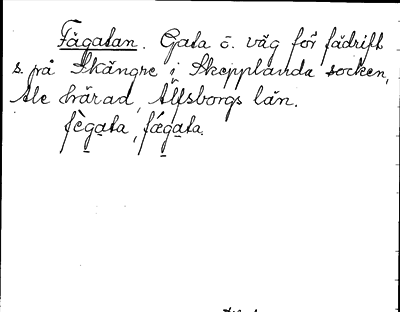 Fägatan. Gata o. väg för fädrift
s. på Skångre i Skepplanda socken,
Ale härad, Älfsborgs län.
fègata, fǽgata.